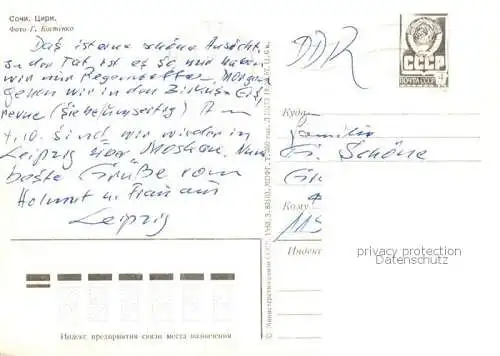 Сочи. Цирк.
Фото Г. Костенко
Das ist eine schöne Ansicht.
In der Tat ist es so nur haben
wir nur Regenwetter. Morgen
gehen wir in den Zirkus Eis,
revue (Siehe umseitig) Am
4.10. sind wir wieder in
Leipzig über Moskau. Nun
beste Grüße vom
Helmut u. Frau aus
Leipzig
DDR
СССР
ПОЧТА СССР
Куда
Familie
G. Schöne
Кому
Индекс
privacy protection
Datenschutz
Индекс предприятия связи места назначения
© Министерство связи СССР